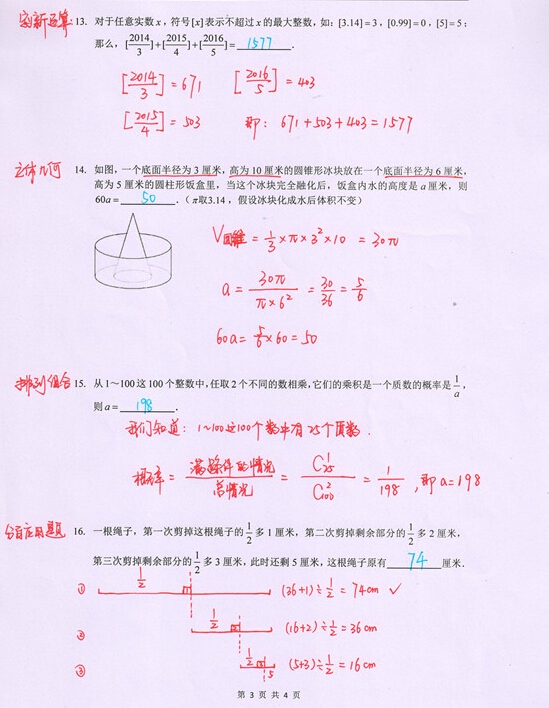 定新运算 13. 对于任意实数 x，符号[x]表示不超过 x 的最大整数，如：[3.14] = 3，[0.99] = 0，[5] = 5；
那么，[2014/3]+[2015/4]+[2016/5] = 1577 .
[2014/3] = 671 [2016/5] = 403
[2015/4] = 503 即: 671 + 503 + 403 = 1577
立体几何 14. 如图，一个底面半径为 3 厘米，高为 10 厘米的圆锥形冰块放在一个底面半径为 6 厘米，
高为 5 厘米的圆柱形饭盒里，当这个冰块完全融化后，饭盒内水的高度是 a 厘米，则
60a = 50 .（π取3.14，假设冰块化成水后体积不变）
V圆锥 = 1/3 × π × 3² × 10 = 30π
a = 30π/(π×6²) = 30/36 = 5/6
60a = 5/6 × 60 = 50
排列组合 15. 从 1～100 这 100 个整数中，任取 2 个不同的数相乘，它们的乘积是一个质数的概率是 1/a，
则 a = 198 .
我们知道: 1~100这100个数中有25个质数.
概率 = 满足条件的情况/总情况 = C¹₂₅/C²₁₀₀ = 1/198 , 即 a=198
分百应用题 16. 一根绳子，第一次剪掉这根绳子的 1/2 多 1 厘米，第二次剪掉剩余部分的 1/2 多 2 厘米，
第三次剪掉剩余部分的 1/2 多 3 厘米，此时还剩 5 厘米，这根绳子原有 74 厘米.
① 1/2 (36+1)÷1/2 = 74cm ✓
② 1/2 (16+2)÷1/2 = 36cm
③ 1/2 5 (5+3)÷1/2 = 16cm
第 3 页 共 4 页